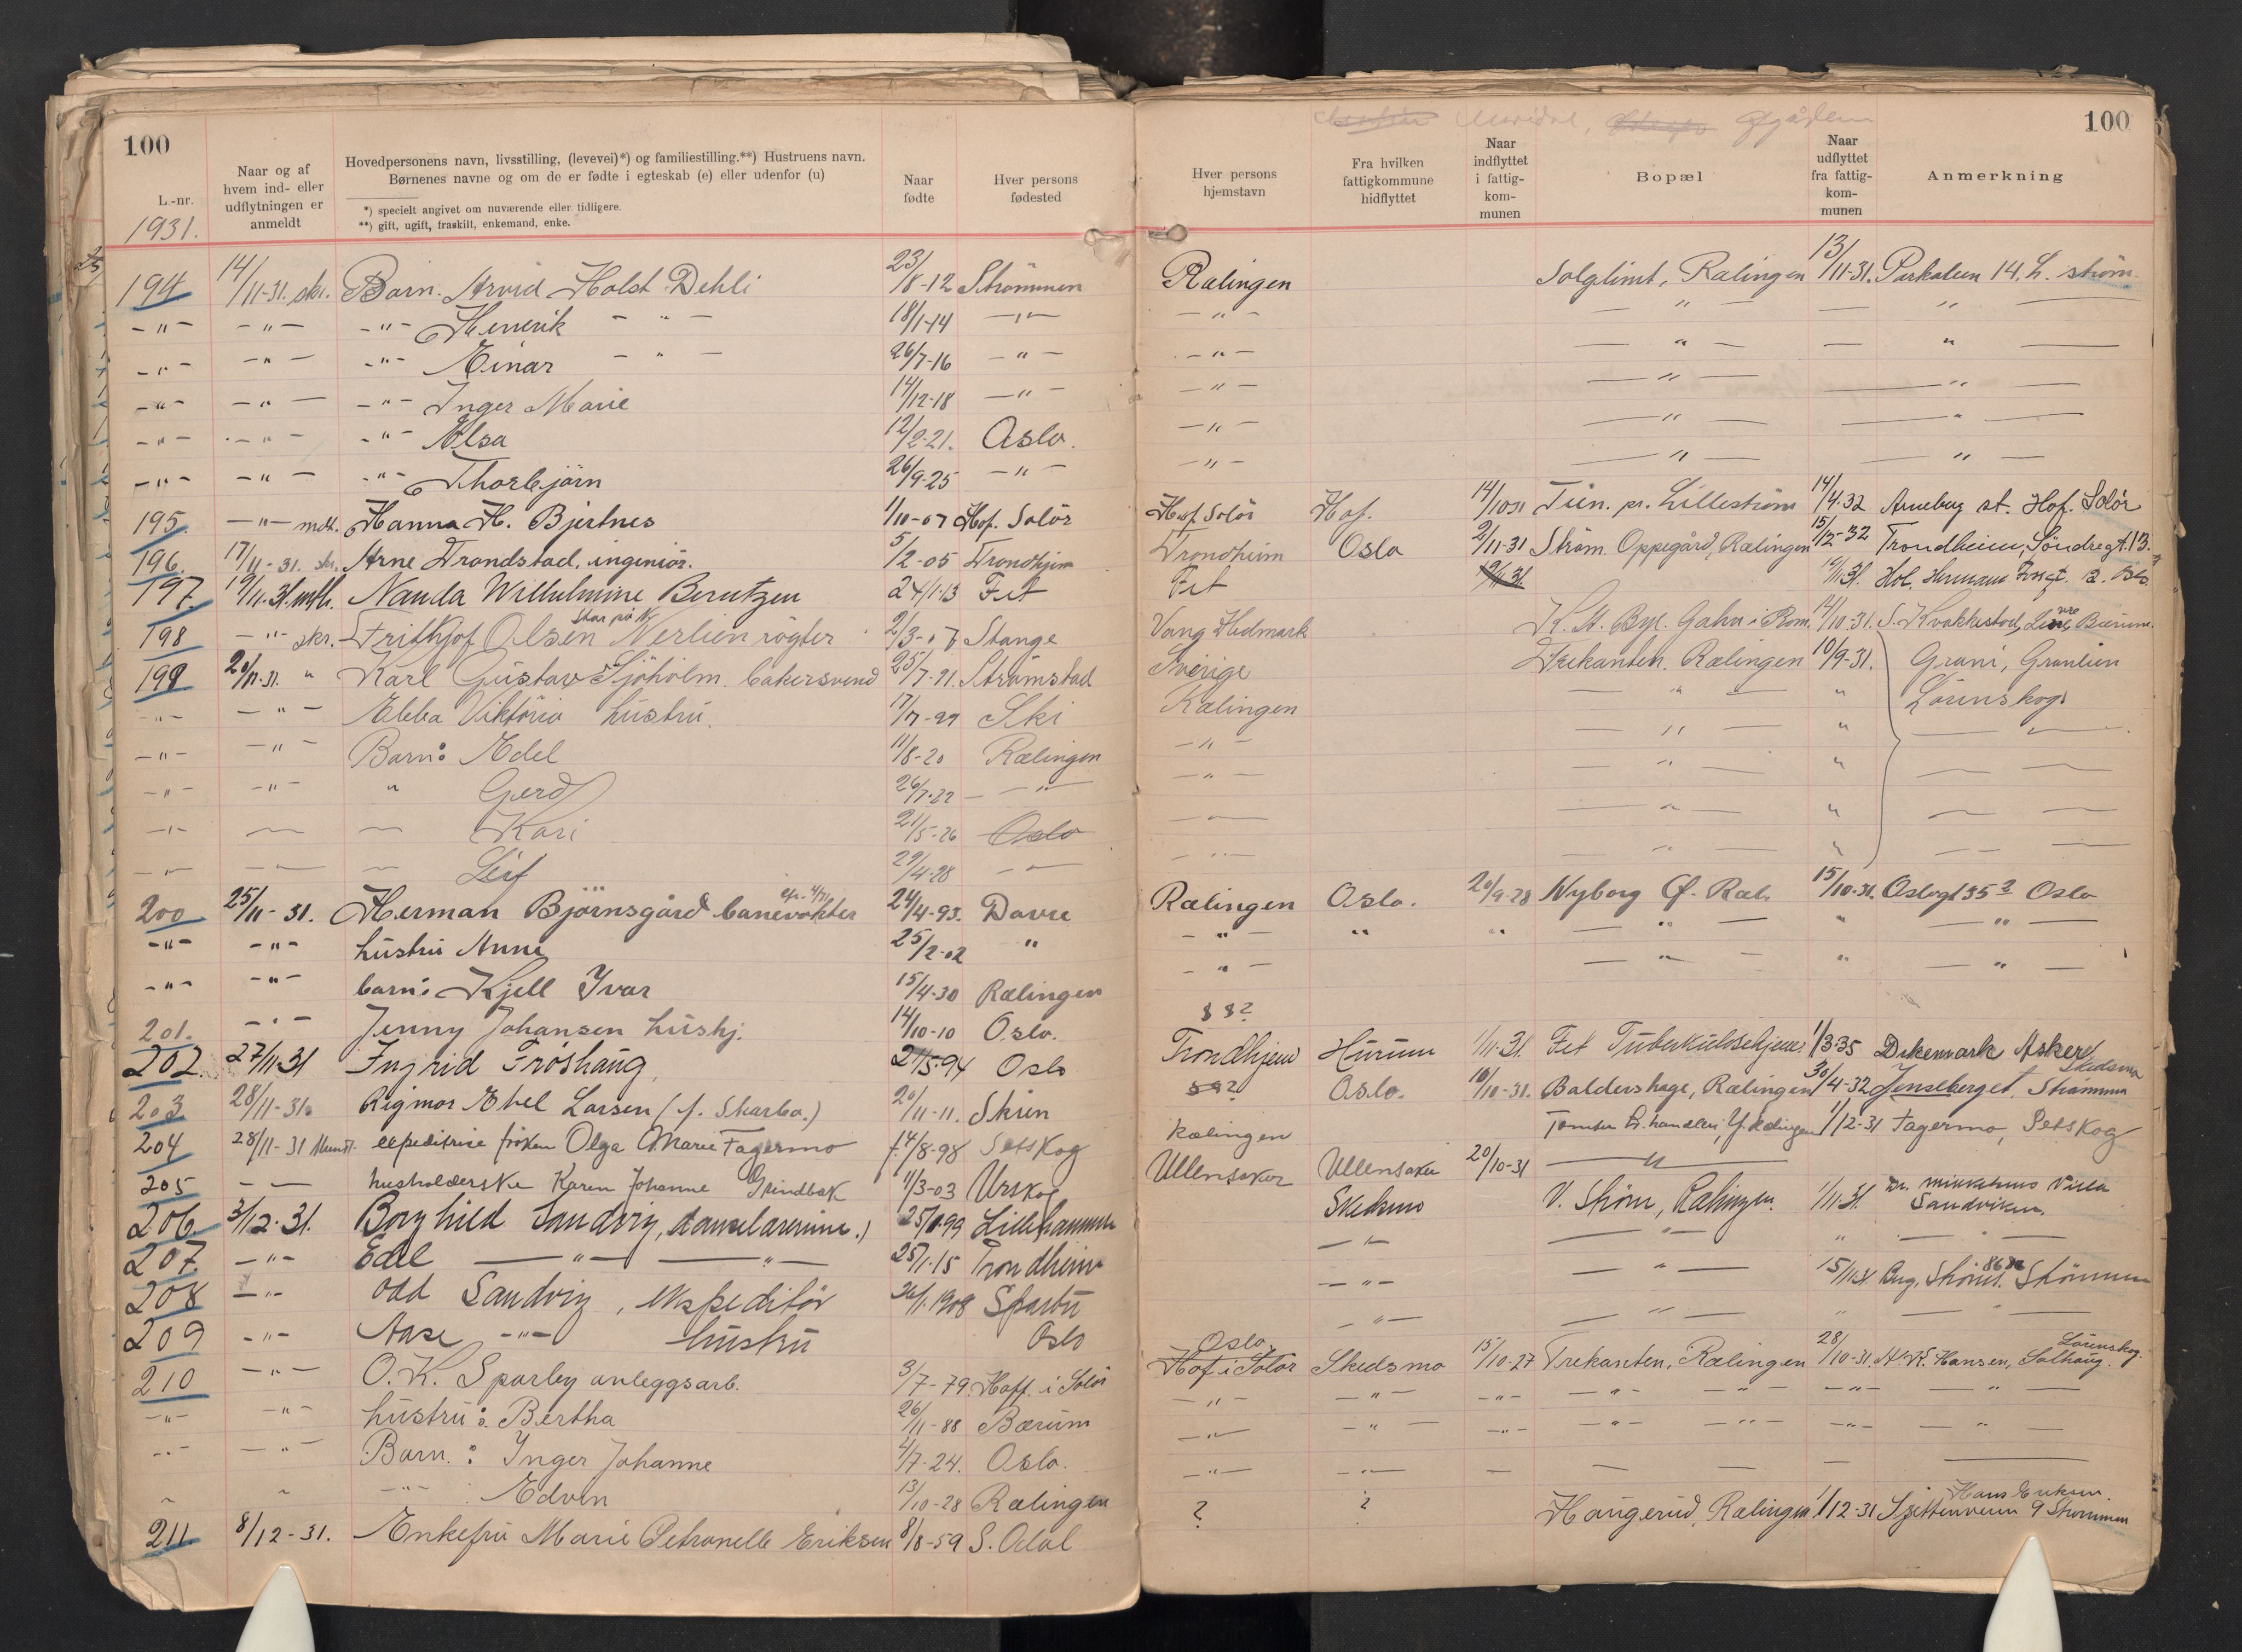 100
L.-nr.
Naar og af hvem ind- eller udflytningen er anmeldt
Hovedpersonens navn, livsstilling, (levevei)*) og familiestilling.**) Hustruens navn.
Børnenes navne og om de er fødte i egteskab (e) eller udenfor (u)
*) specielt angivet om nuværende eller tidligere.
**) gift, ugift, fraskilt, enkemand, enke.
Naar fødte
Hver persons fødested
Hver persons hjemstavn
Fra hvilken fattigkommune hidflyttet
Naar indflyttet i fattig-kom-munen
Bopæl
Naar udflyttet fra fattig-kom-munen
Anmerkning
100
1931.
194 14/11-31. skr. Barn. Arvid Holst Dehli 23/8-12 Strømmen Rælingen Solglimt, Rælingen 13/11-31. Parkaleen 14. L. strøm
-"- -"- -"- Henrik -"- 18/1-14 -"- -"- -"- -"-
-"- -"- -"- Einar -"- 26/7-16 -"- -"- -"- -"-
-"- -"- -"- Inger Marie 14/12-18 -"- -"- -"- -"-
-"- -"- -"- Elsa 12/2-21. Oslo. -"- -"- -"-
-"- -"- -"- Thorbjörn 26/9-25 -"- -"- -"- -"-
195 -"- mdt. Hanna H. Bjertnes 1/10-07 Hof. Solör Hof. Solör Hof. 14/10 31 Tien. pr. Lilleström 14/4.32 Arneberg st. Hof. Solör
196. 17/11-31. skr. Arne Trondstad, ingeniör. 5/2-05 Trondhjem Trondheim Oslo 2/11-31 Strøm. Oppegård, Rælingen 15/2-32 Trondheim, Söndregt. 13.
197. 19/11.31. mth. Nanda Wilhelmine Berntzen 24/1.13 Fet Fet 19/11.31. 19/11.31. Hol. Hermans gt. 12. Oslo
198 -"- skr. Frithjof Olsen Nerlien rögter 2/3-07 Stange Vang Hedmark 14/10.31. S. Kvakkestad, Bærum.
199 20/11.31. " Karl Gustav Sjöholm. bakersvend 25/7-91. Strømstad Sverige Trekanten. Rælingen 10/9-31. Grani, Granlien
-"- -"- Ebba Viktoria hustru. 17/7-99 Ski Rælingen -"- " Lørenskog
-"- -"- Barn: Edel 11/8-20 Rælingen -"- -"- " -"-
-"- -"- " Gerd 26/7-22 -"- -"- -"- "
-"- Kari 21/5-26 Oslo -"- "
-"- Leif 29/4-28 -"- -"- -"- "
200 25/11-31. Herman Björnsgård banevokter 24/4-93. Dovre Rælingen Oslo. 20/9-28 Nyborg Ø. Ræl. 15/10-31. Oslogt 35 2 Oslo
-"- -"- hustru Anne 25/2-02 " -"- " " -"- " -"-
-"- -"- barn: Kjell Ivar 15/4-30 Rælingen -"- -"- " -"-
201. -"- Jenny Johansen hushj. 14/10-10 Oslo. ???
202. 27/11-31 Ingrid Fröshaug. 27/5-94 Oslo Trondhjem Hurum 1/11.31. Fet Tuberkulosehjem. 1/3-35 Dikemark Asker
203 28/11-31. Rigmor Etel Larsen (f. Skarbo.) 20/11-11. Skien Oslo. 10/10-31. Baldershage, Rælingen 30/4-32 Jenseberget, Strømmen Skedsmo
204 28/11-31 Mundt. expeditrise frøken Olga Marie Fagermo f. 4/8-98 Setskog Rælingen 1/12-31 Fagermo, Setskog
205 -"- husholderske Karen Johanne Grindbak 11/3-03 Urskog Ullensaker Ullensaker 20/10-31 -"-
206. 3/12-31. Borghild Sandvig, 25/ .99 Lillehammer Skedsmo V. Strøm, Rælingen. 1/11.31. Dr. villa Sandviken.
207. -"- Edel -"- -"- 25/1.15 Trondheim -"- -"- " -"-
208 -"- Odd Sandvig, ekspeditör 26/1.1908 Sparbu -"- -"- 15/11.31 Strømmen
209 -"- Aase -"- hustru Oslo -"- -"- " -"-
210 -"- O. K. Sparby anleggsarb. 3/7-79. Hoff. i Solör Oslo, Hof i Solör Skedsmo 15/10-27 Trekanten, Rælingen 28/10-31. Hansen, Solhaug. Lørenskog.
-"- -"- hustru: Bertha 26/11-88 Bærum -"- -"- -"- -"- -"- -"- -"-
-"- -"- Barn: Inger Johanne 4/7-24. Oslo. -"- -"- -"- -"- -"- -"- -"-
-"- Edvin 13/10-28 Rælingen -"- -"-
211 8/12-31. Enkefru Marie Petronelle Eriksen 8/8-59 S. Odal ? ? Haugerud, Rælingen 1/12-31 Hans Eriksen. 9 Strømmen